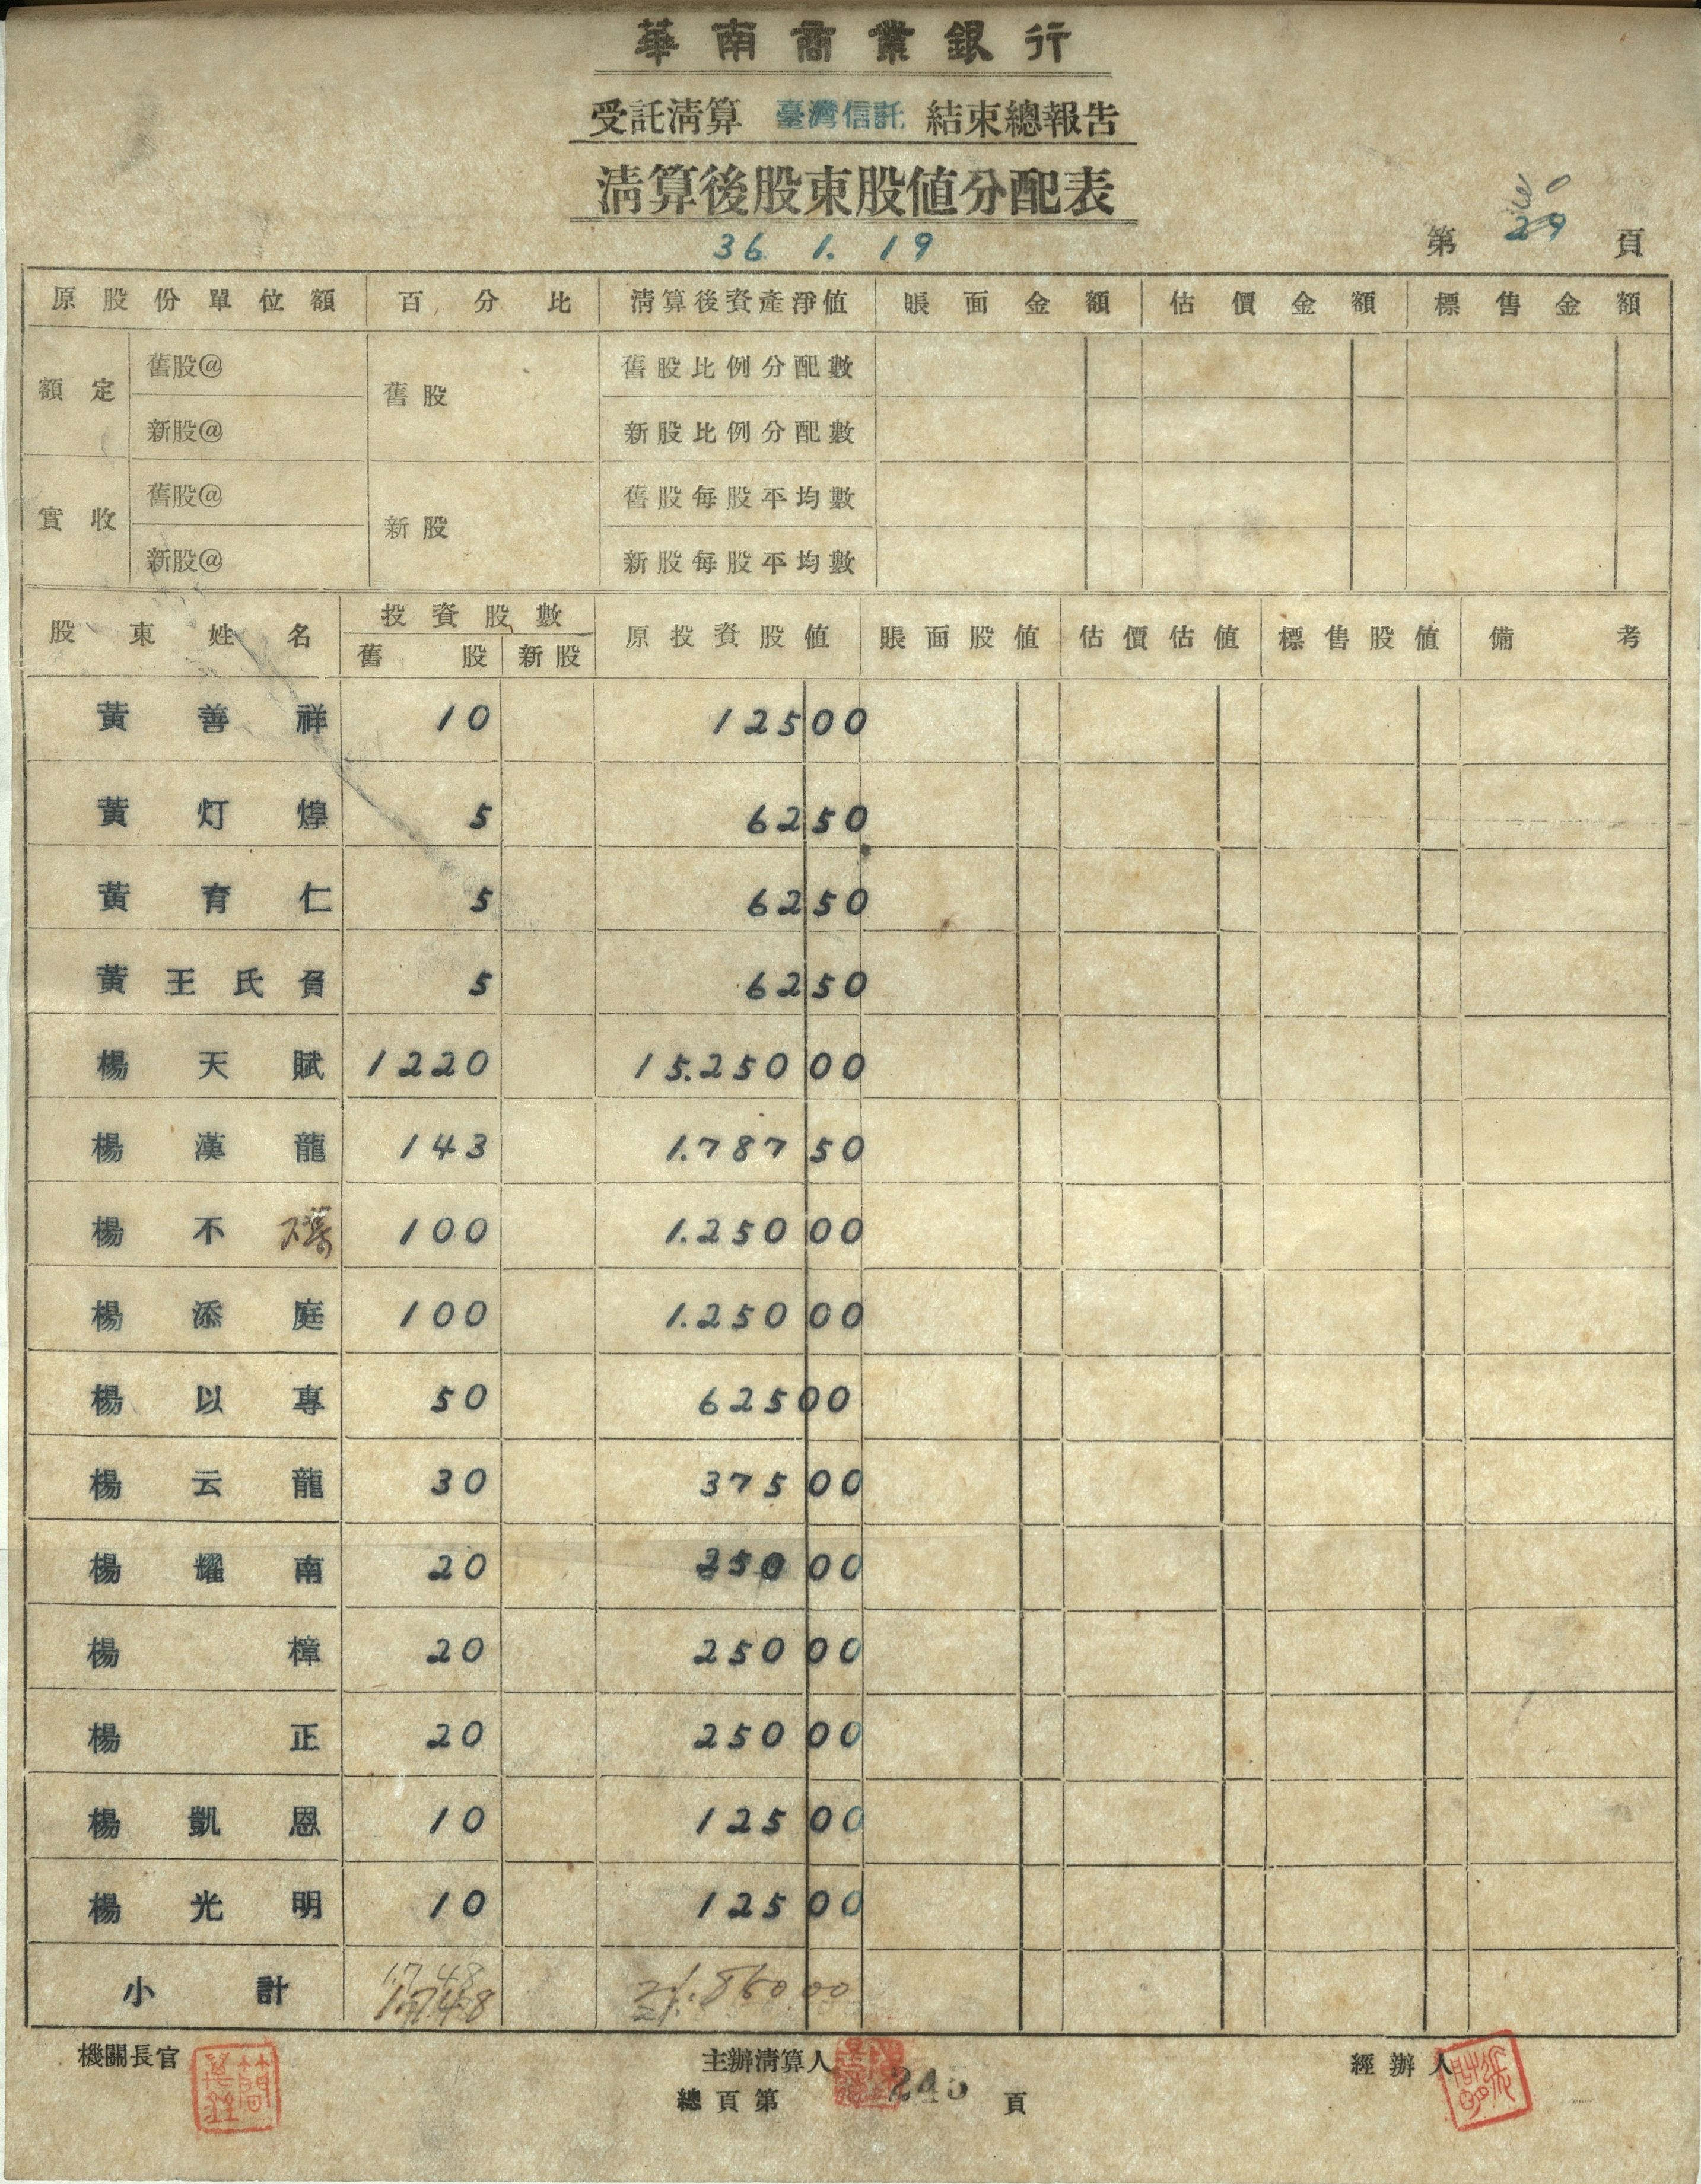 華南商業銀行
受託清算 臺灣信託 結束總報告
清算後股東股值分配表
36. 1. 19
第 29 頁
原股份單位額 百分比 清算後資產淨值 賬面金額 估價金額 標售金額
額定 舊股@ 舊股 舊股比例分配數
新股@ 新股比例分配數
實收 舊股@ 新股 舊股每股平均數
新股@ 新股每股平均數
股東姓名 投資股數 原投資股值 賬面股值 估價估值 標售股值 備考
舊股 新股
黃善祥 10 125 00
黃灯煌 5 62 50
黃育仁 5 62 50
黃王氏員 5 62 50
楊天賦 1220 15.250 00
楊漢龍 143 1.787 50
楊不 100 1.250 00
楊添庭 100 1.250 00
楊以專 50 625 00
楊云龍 30 375 00
楊耀南 20 250 00
楊樟 20 250 00
楊正 20 250 00
楊凱恩 10 125 00
楊光明 10 125 00
小計 1.748 21.850.00
機關長官 主辦清算人 經辦人
總頁第 245 頁